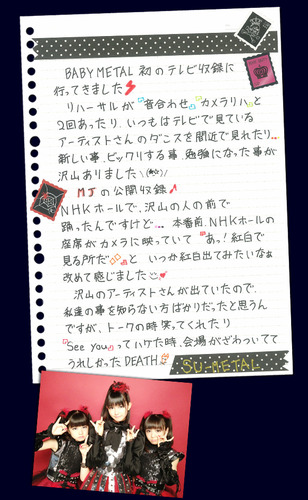 BABYMETAL 初のテレビ収録に
行ってきました
リハーサルが"音合わせ、カメラリハ"と
2回あったり、いつもはテレビで見ている
アーティストさんのダンスを間近で見れたり…
新しい事、ビックリする事、勉強になった事が
沢山ありました
MJの公開収録♪
NHKホールで、沢山の人の前で
踊ったんですけど… 本番前、NHKホールの
座席がカメラに映っていて "あっ!紅白で
見る所だ"と いつか紅白出てみたいなぁ
改めて感じました
沢山のアーティストさんが出ていたので、
私達の事を知らない方ばかりだったと思うん
ですが、トークの時笑ってくれたり
"See you"ってハケた時、会場がざわついてて
うれしかったDEATH
SU-METAL